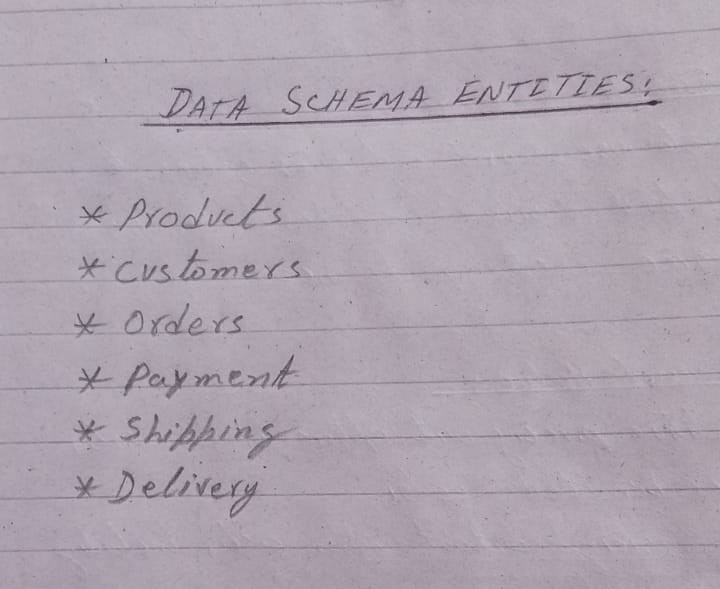 DATA SCHEMA ENTITIES:
* Products
* Customers
* Orders
* Payment
* Shipping
* Delivery